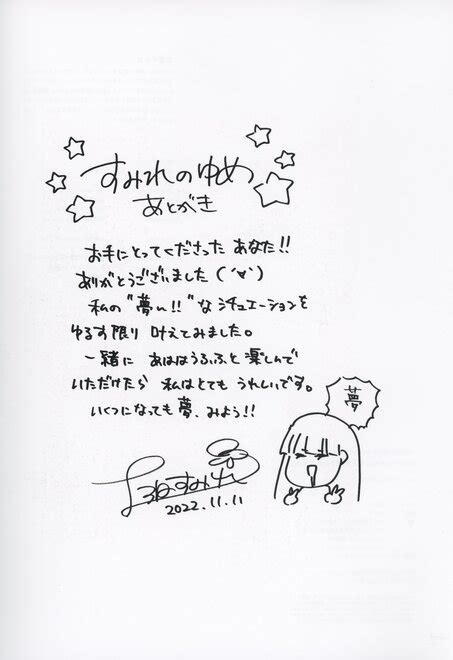 すみれのゆめ
あとがき
お手にとってくださった あなた!!
ありがとうございました (´∀`)
私の"夢い!!"な シチュエーションを
ゆるす限り 叶えてみました。
一緒に あははうふふと 楽しんで
いただけたら 私はとても うれしいです。
いくつになっても夢、みよう!!
夢
2022.11.11